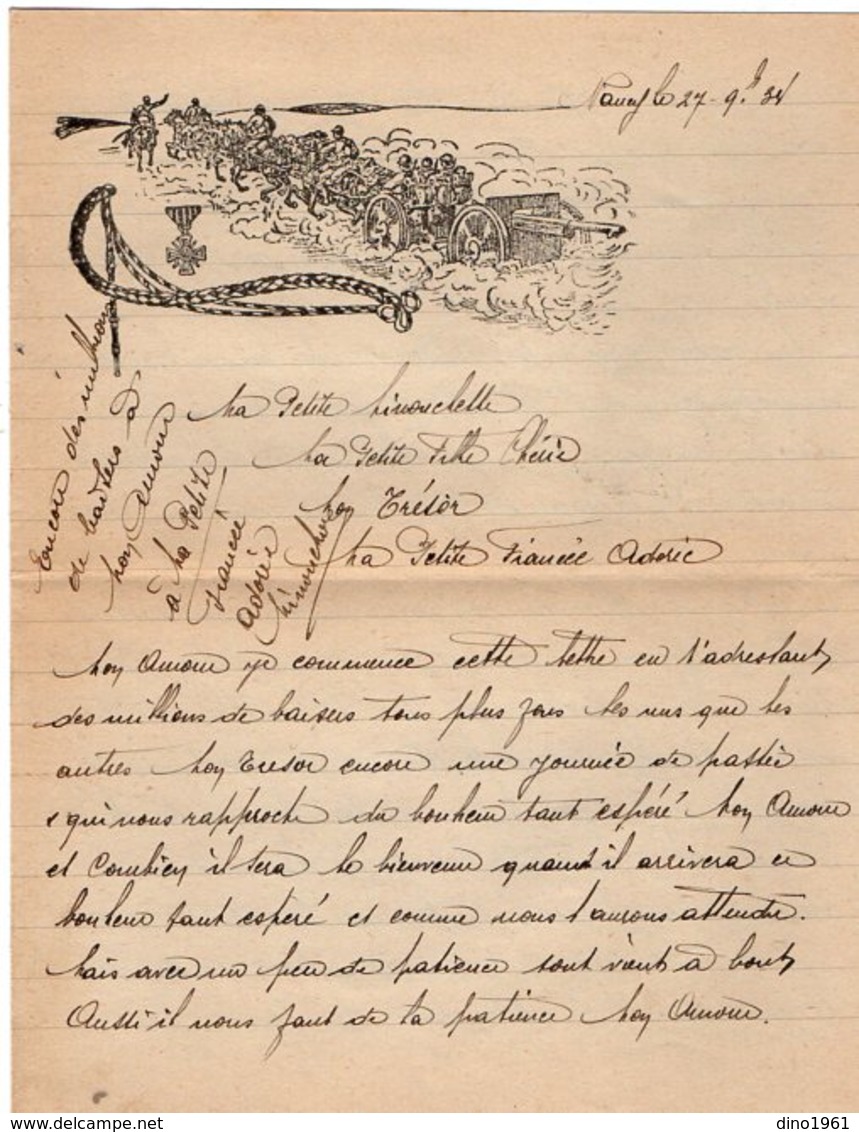 Nancy le 27-9bre 34
Ma Petite Linouchette
Ma Petite Fille Chérie
Mon Trésor
Ma Petite Fiancée Adorée
Encore des millions
de baisers à
Mon Amour
à Ma Petite
Fiancée
Adorée
Linouchon
Mon Amour je commence cette lettre en t'adressant
des millions de baisers tous plus fous les uns que les
autres Mon Tresor encore une journée de passée
qui nous rapproche du bonheur tant espéré Mon Amour
et Combien il sera le bienvenu quant il arrivera ce
bonheur tant espéré et comme nous l'aurons attendu.
Mais avec un peu de patience tout vient à bout
Aussi il nous faut de la patience Mon Amour.
dino1961